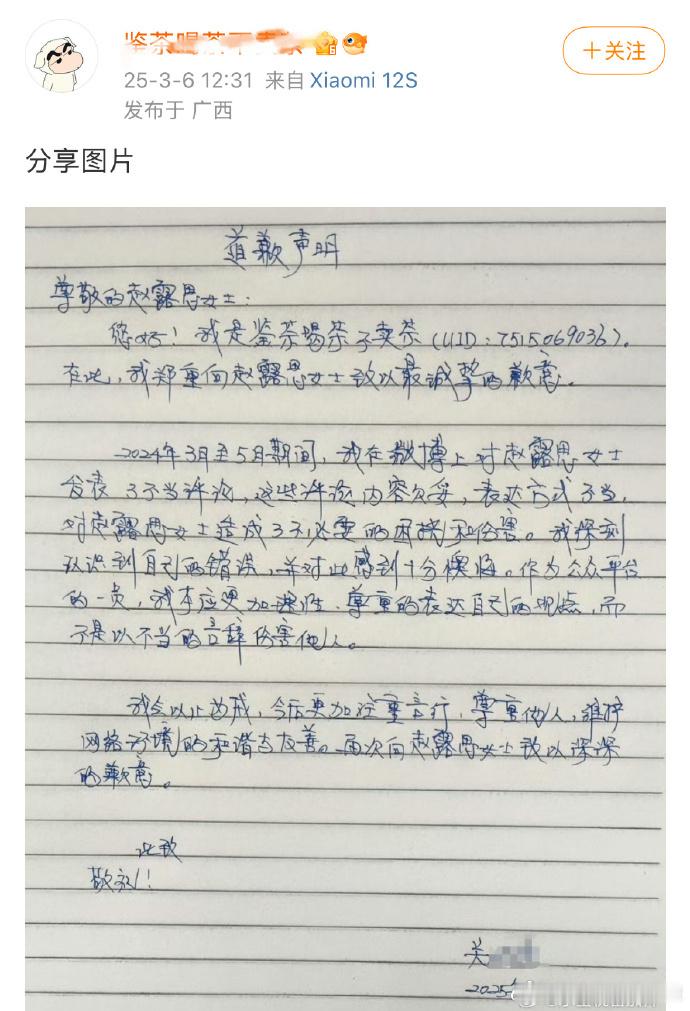 25-3-6 12:31 来自 Xiaomi 12S
发布于 广西
+关注
分享图片
道歉声明
尊敬的赵露思女士：
您好！我是鉴茶喝茶不卖茶（UID：7515069036）。
在此，我郑重向赵露思女士致以最诚挚的歉意。
2024年3月至5月期间，我在微博上对赵露思女士
发表了不当评论，这些评论内容欠妥，表达方式不当，
对赵露思女士造成了不必要的困扰和伤害。我深刻
认识到自己的错误，并对此感到十分懊悔。作为公众平台
的一员，我本应更加理性、尊重的表达自己的观点，而
不是以不当的言辞伤害他人。
我会以此为戒，今后更加注重言行，尊重他人，维护
网络环境的和谐与友善。再次向赵露思女士致以深深
的歉意。
此致
敬礼！
关
2025